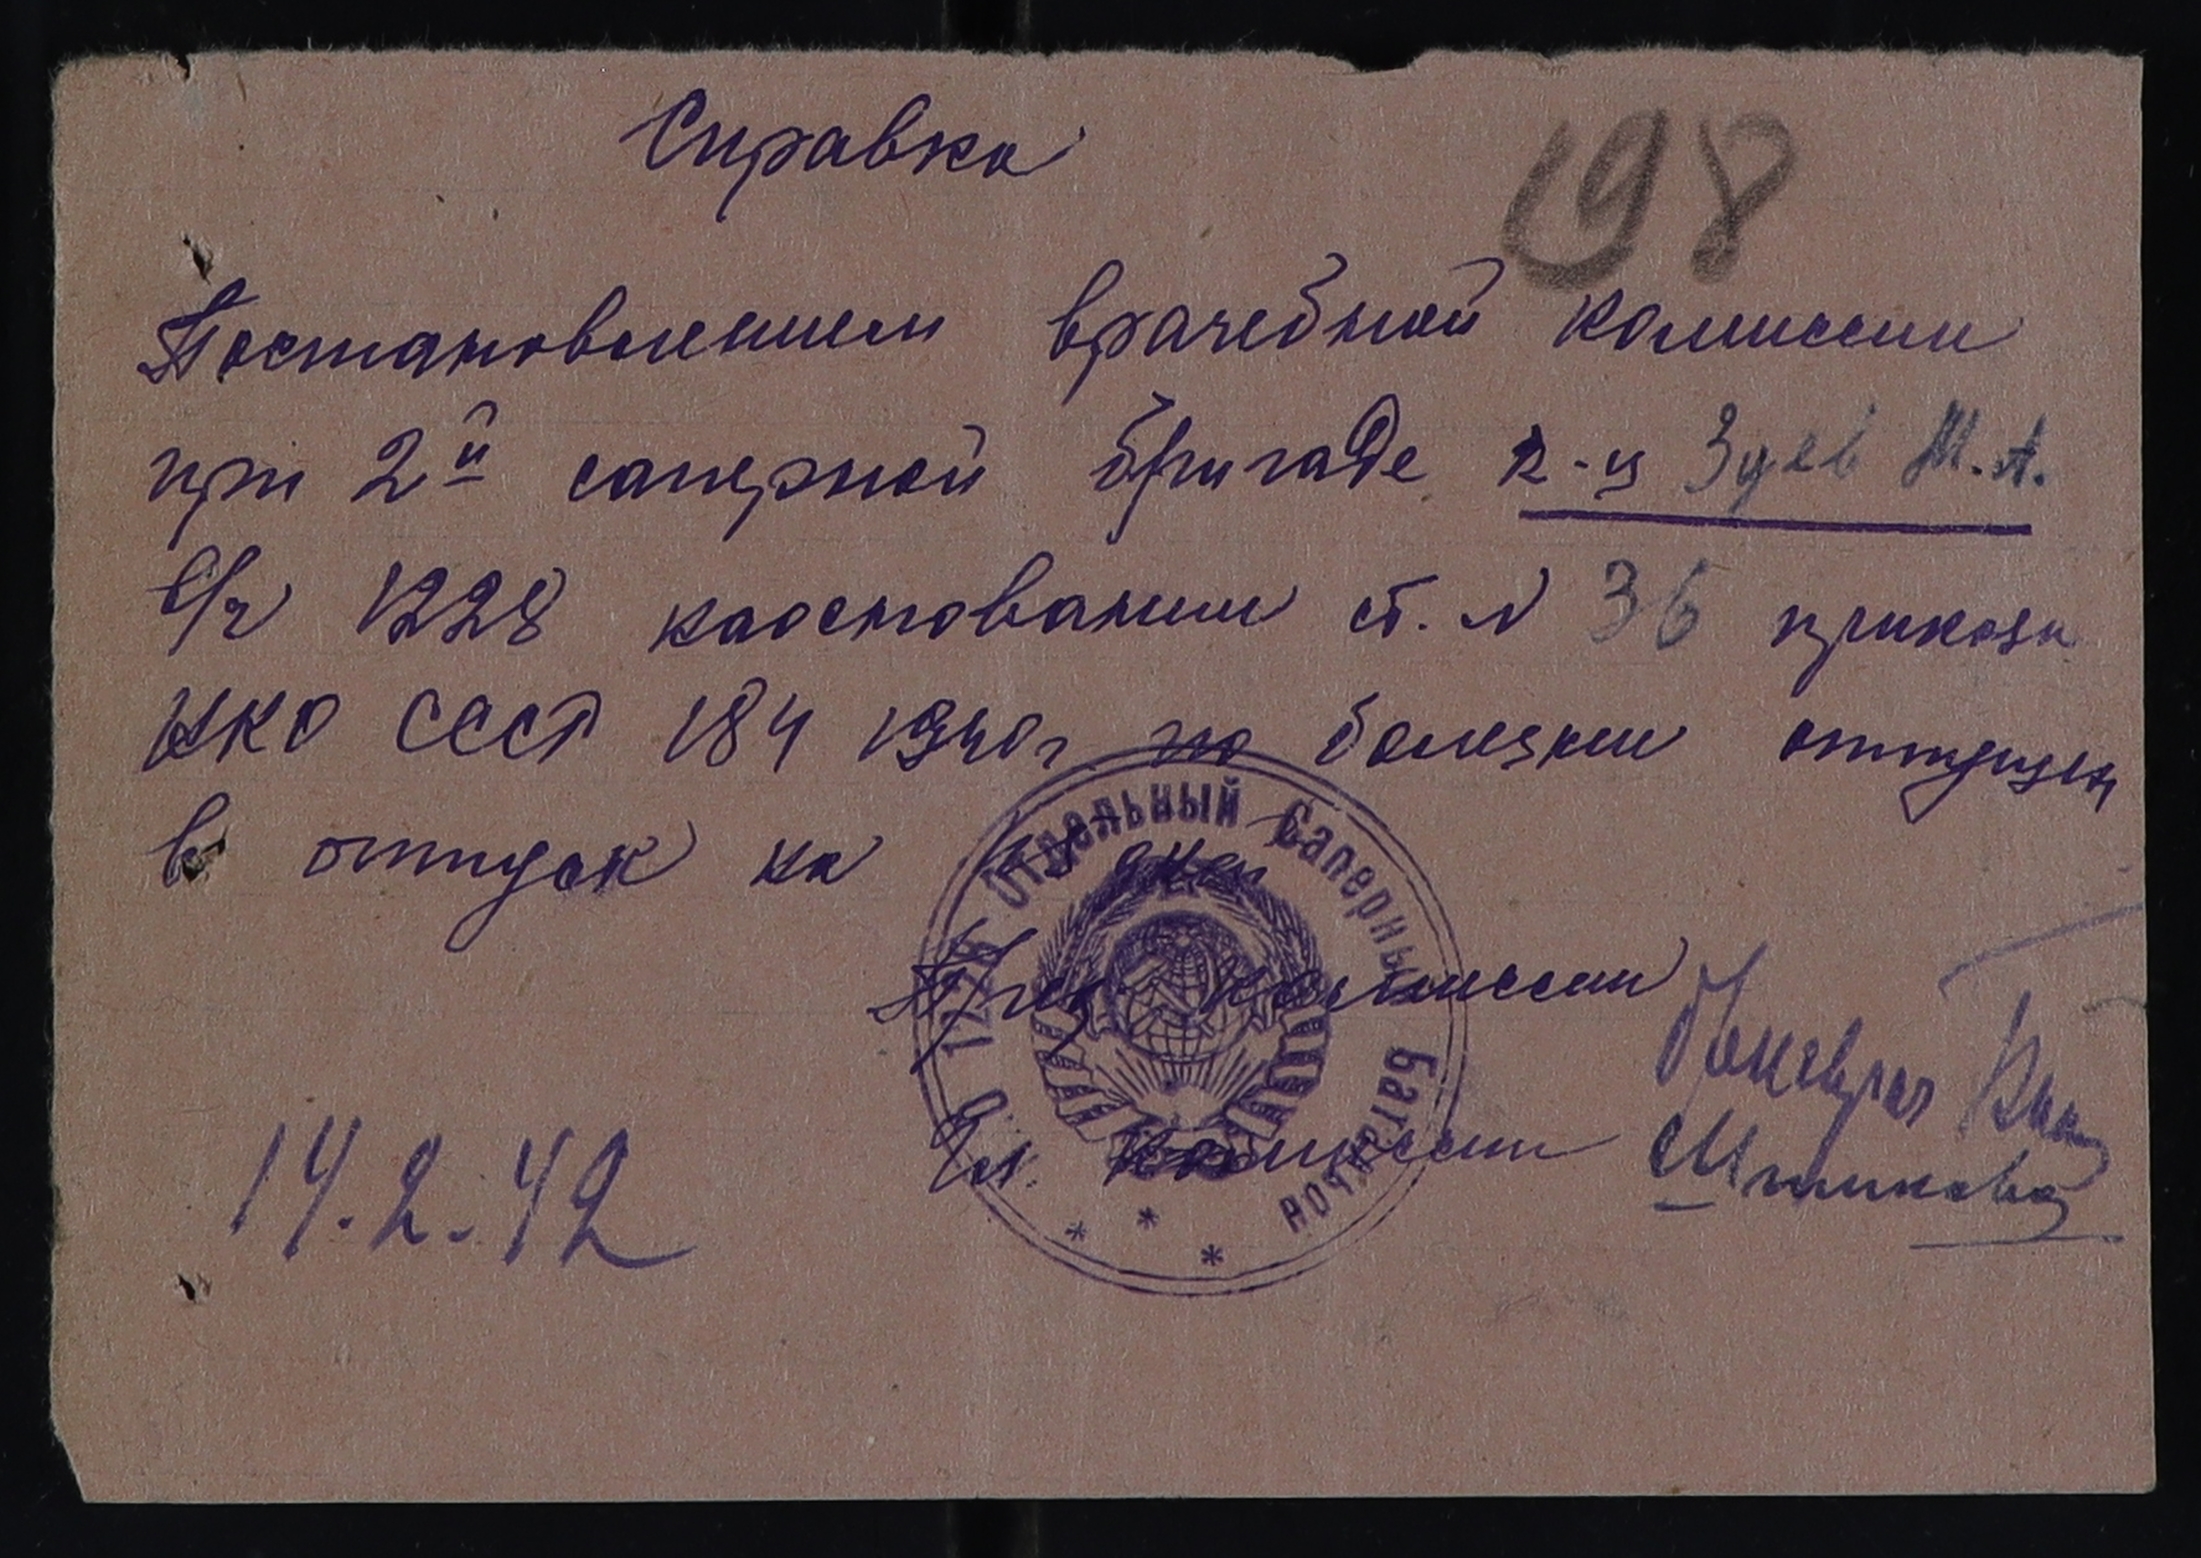 Справка
198
Постановлением врачебной комиссии
при 2й саперной бригаде к-ц Зуев М.А.
в/ч 1228 на основании ст. N 36 приказа
НКО СССР 184 1940г по болезни отпущен
в отпуск на дней
Пред комиссии
Чл. комиссии
14.2.42
1228 Отдельный Саперный Батальон